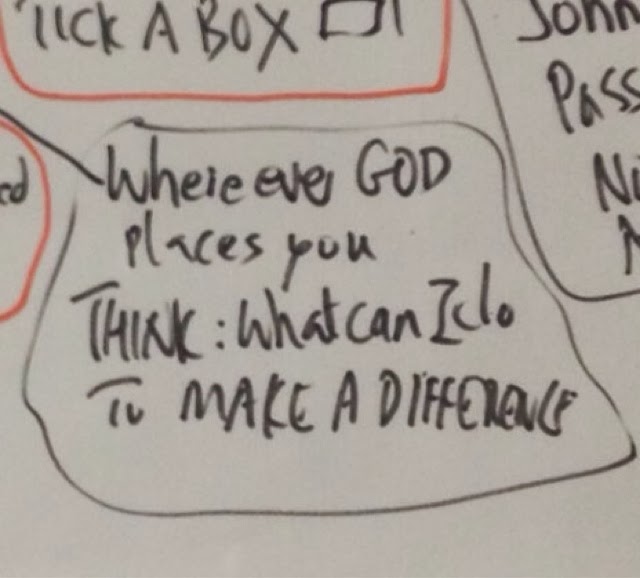 TICK A BOX
John
Pass
Ni
ed
Whereever GOD
places you
THINK: What can I do
To MAKE A DIFFERENCE